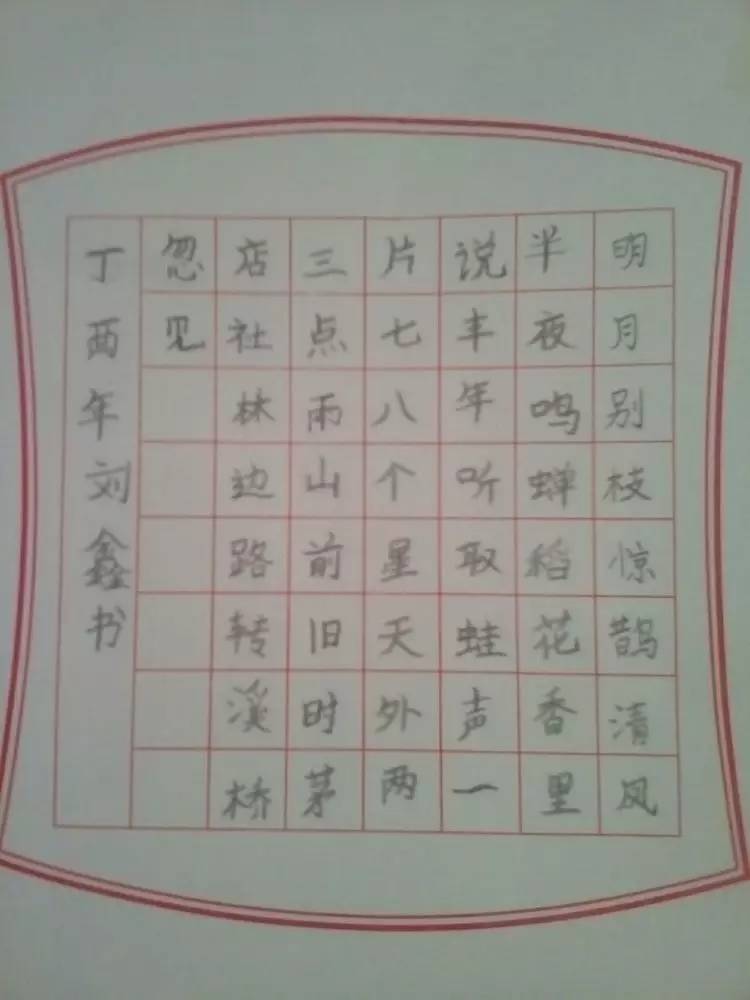 明月别枝惊鹊清风
半夜鸣蝉稻花香里
说丰年听取蛙声一
片七八个星天外两
三点雨山前旧时茅
店社林边路转溪桥
忽见
丁酉年刘鑫书